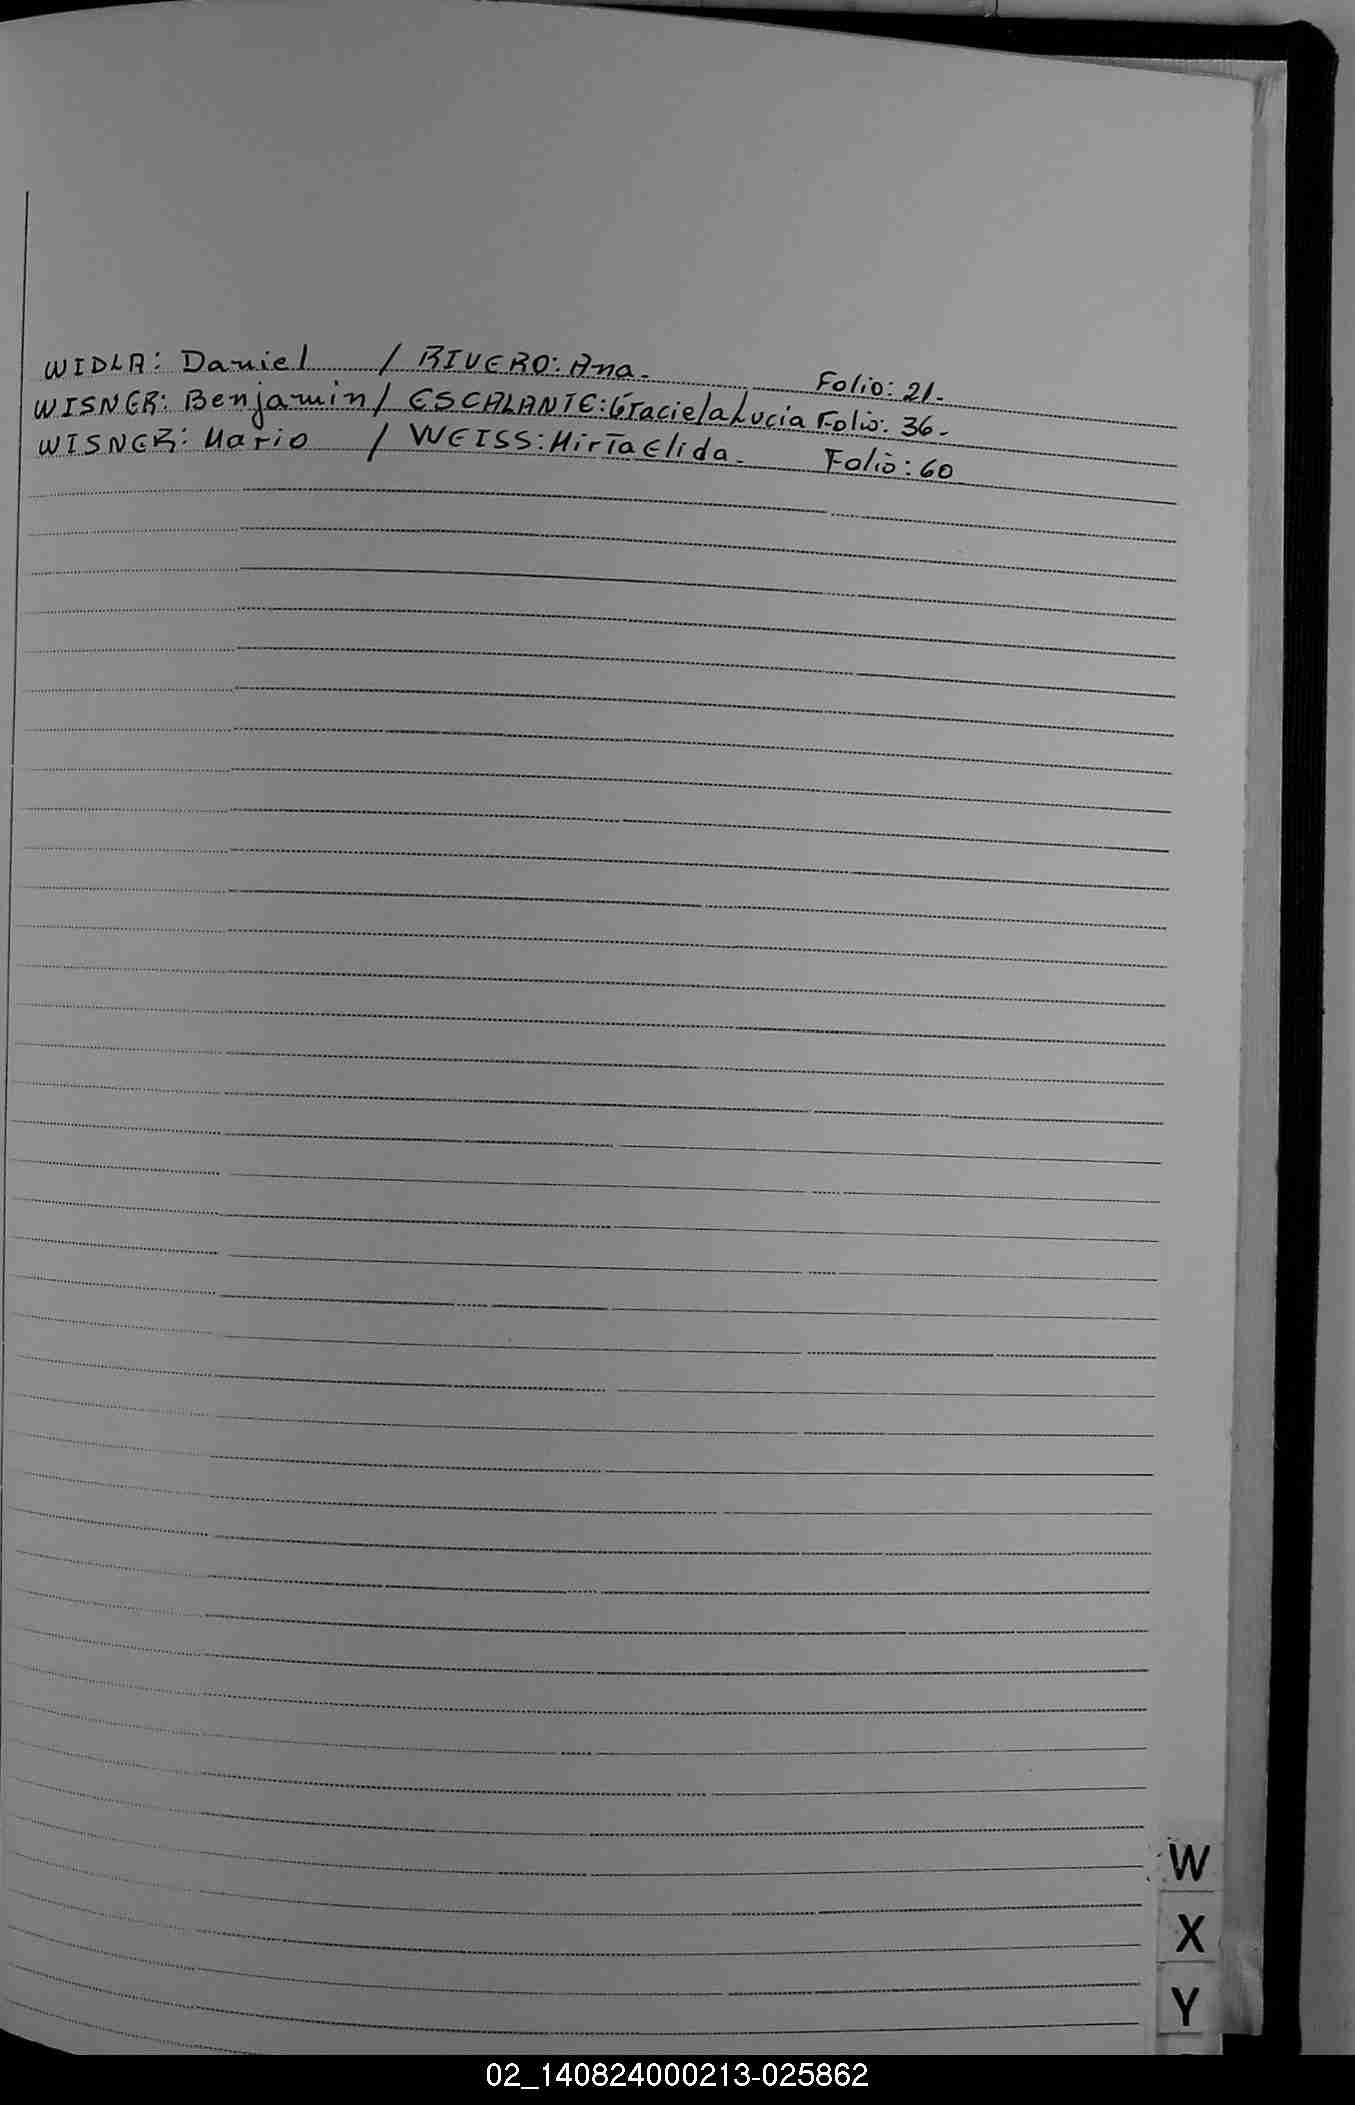 WIDLA: Daniel / RIVERO: Ana. Folio: 21.
WISNER: Benjamin / ESCALANTE: Graciela Lucia Folio: 36.
WISNER: Mario / WEISS: Mirta Elida. Folio: 60
W
X
Y
02_140824000213-025862